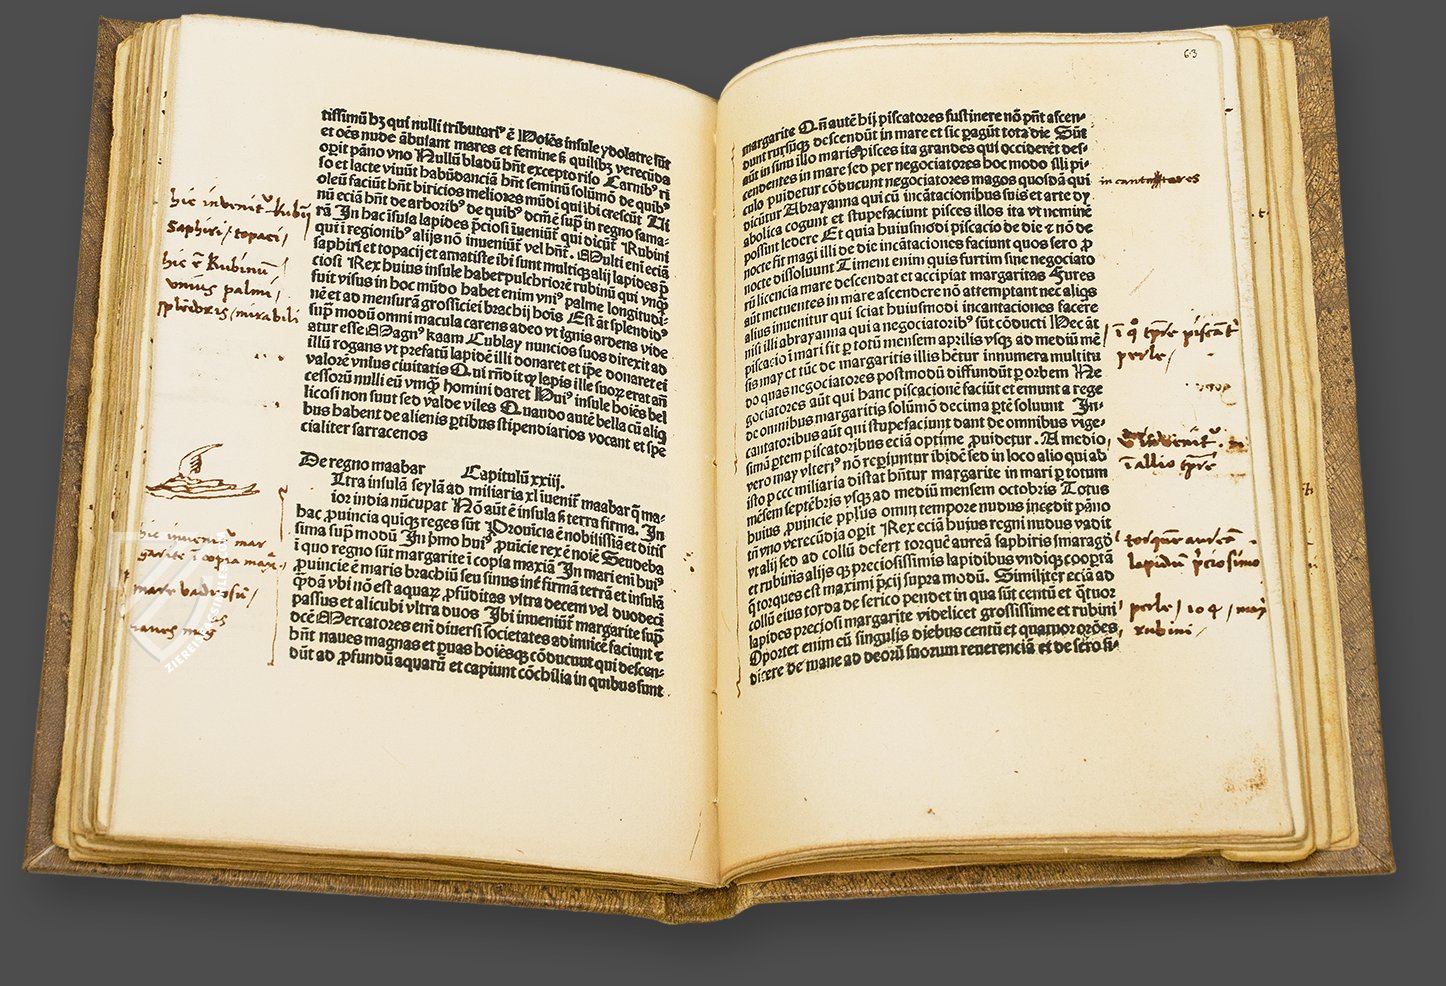 tissimū bȝ qui nulli tributariꝰ ē Hoiēs insule ydolatre sūt
et oēs nude ābulant mares et femine s̄ quilibȝ verecūda
oꝑit pāno vno Nullū bladū hn̄t excepto riso Carnibꝰ ri
so et lacte viuūt habūdanciā hn̄t seminū solūmō de quibꝰ
oleū faciūt hn̄t biricios meliores mūdi qui ibi crescūt Ui
nū eciā hn̄t de arboribꝰ de quibꝰ dcm̄ ē supͣ in regno sama-
rā In hac īsula lapides p̄ciosi īueniūt᷑ qui dicūt᷑ Rubini
qui ī regionibꝰ alijs nō inueniūt᷑ vel hn̄t᷑. Multi eni eciā
saphiri et topacij et amatiste ibi sunt multiqꝫ alij lapides p̄
ciosi Rex huius insule habet pulchriorē rubinū qui vnqꝫ
fuit visus in hoc mūdo habet enim vniꝰ palme longitudi-
nē et ad mensurā grossiciei brachij hoīs Est āt splendidꝰ
supͣ modū omni macula carens adeo vt ignis ardens vide
atur esse Magnꝰ kaam Cublay nuncios suos direxit ad
illū rogans vt prefatū lapidē illi donaret et ip̄e donaret ei
valorē vnius ciuitatis Qui rn̄dit qꝫ lapis ille suoꝝ erat an̄
cessorū nulli eū vmqꝫ homini daret Huiꝰ insule hoiēs bel
licosi non sunt sed valde viles Quando autē bella cū aliqͥ
bus habent de alienis ꝑtibus stipendiarios vocant et spe
cialiter sarracenos
De regno maabar Capitulū xxiij.
Ltra insulā seylā ad miliaria xl iuenit᷑ maabar q̄ ma-
ior india nūcupat᷑ Nō aūt ē insula s̄ terra firma. In
hac ꝓuincia quiqꝫ reges sūt Prouīcia ē nobilissīa et ditis
sima supͣ modū In pͥmo huiꝰ ꝓuīcie rex ē noiē Seudeba
ī quo regno sūt margarite ī copia maxīa In mari enī huiꝰ
ꝓuincie ē maris brachiū seu sinus int᷑ firmā terrā et insulā
qͣndā vbi nō est aquaꝝ ꝓfūditas vltra decem vel duodecī
passus et alicubi vltra duos Ibi inueniūt᷑ margarite supͣ
dcē Mercatores enī diuersi societates adinuicē faciunt ⁊
hn̄t naues magnas et ꝑuas hoiēsqꝫ cōducunt qui descen-
dūt ad ꝓfundū aquarū et capiunt cōchilia in quibus sunt
hic invenit᷑ Rubini
saphiri / topaci /
hic ē Rubinū /
unius palmi /
splēdoris / mirabili
hic inveniū᷑ mar
garite ī copia maxᵃ
mare vadosū /
naves magᵃˢ
63
margarite Qn̄ autē hij piscatores sustinere nō pn̄t ascen-
dunt rursūqꝫ descendūt in mare et sic ꝑagūt tota die Sūt
aūt in sinu illo maris pisces ita grandes qui occiderēt des-
cendentes in mare sed per negociatores hoc modo illi pi-
culo ꝓuidetur cōducunt negociatores magos quosdā qui
dicūtur Abrayanna qui cū incātacionibus suis et arte dy
abolica cogunt et stupefaciunt pisces illos ita vt neminē
possint ledere Et quia huiusmodi piscacio de die ⁊ nō de
nocte fit magi illi de die incātaciones faciunt quos sero ꝓ
nocte dissoluunt Timent enim quis furtim sine negociato
rū licencia mare descendat et accipiat margaritas Fures
aūt metuentes in mare ascendere nō attemptant nec aliqͥs
alius inuenitur qui sciat huiusmodi incantaciones facere
nisi illi abrayanna qui a negociatoribꝰ sūt cōducti Hec āt
piscacio ī mari fit ꝑ totū mensem aprilis vsqꝫ ad mediū mē
sis may et tūc de margaritis illis hētur innumera multitu
do quas negociatores postmodū diffundūt ꝑ orbem Ne
gociatores aūt qui hanc piscacionē faciūt et emunt a rege
de omnibus margaritis solūmō decima ꝑtē soluunt In-
cantatoribus aūt qui stupefaciunt dant de omnibus vige-
simā ꝑtem piscatoribus eciā optime ꝓuidetur. A medio
vero may vlteriꝰ nō reꝑiuntur ibidē sed in loco alio qui ab
isto ꝑ ccc miliaria distat hn̄tur margarite in mari ꝑ totum
mēsem septēbris vsqꝫ ad mediū mensem octobris Totus
huius ꝓuincie pplus omni tempore nudus incedit pāno
tn̄ vno verecūdia oꝑit Rex eciā huius regni nudus vadit
vt alij sed ad collū defert torquē aureā saphiris smaragd
et rubinis alijs qꝫ preciosissimis lapidibus vndiqꝫ cooꝑtā
q̄ torques est maximi p̄cij supra modū. Similiter eciā ad
collū eius torda de serico pendet in qua sūt centū et qͣtuor
lapides preciosi margarite videlicet grossissime et rubini
Oportet enim eū singulis diebus centū et quatuor orōes
dicere de mane ad deorū suorum reuerenciā et de sero si-
incantatores
ī qͦ tp̄re piscāt᷑
perle /
invenit᷑
ī allio tp̄re
torque aureā
lapidiū p̄ciosimo
perle / 104 /
rubini